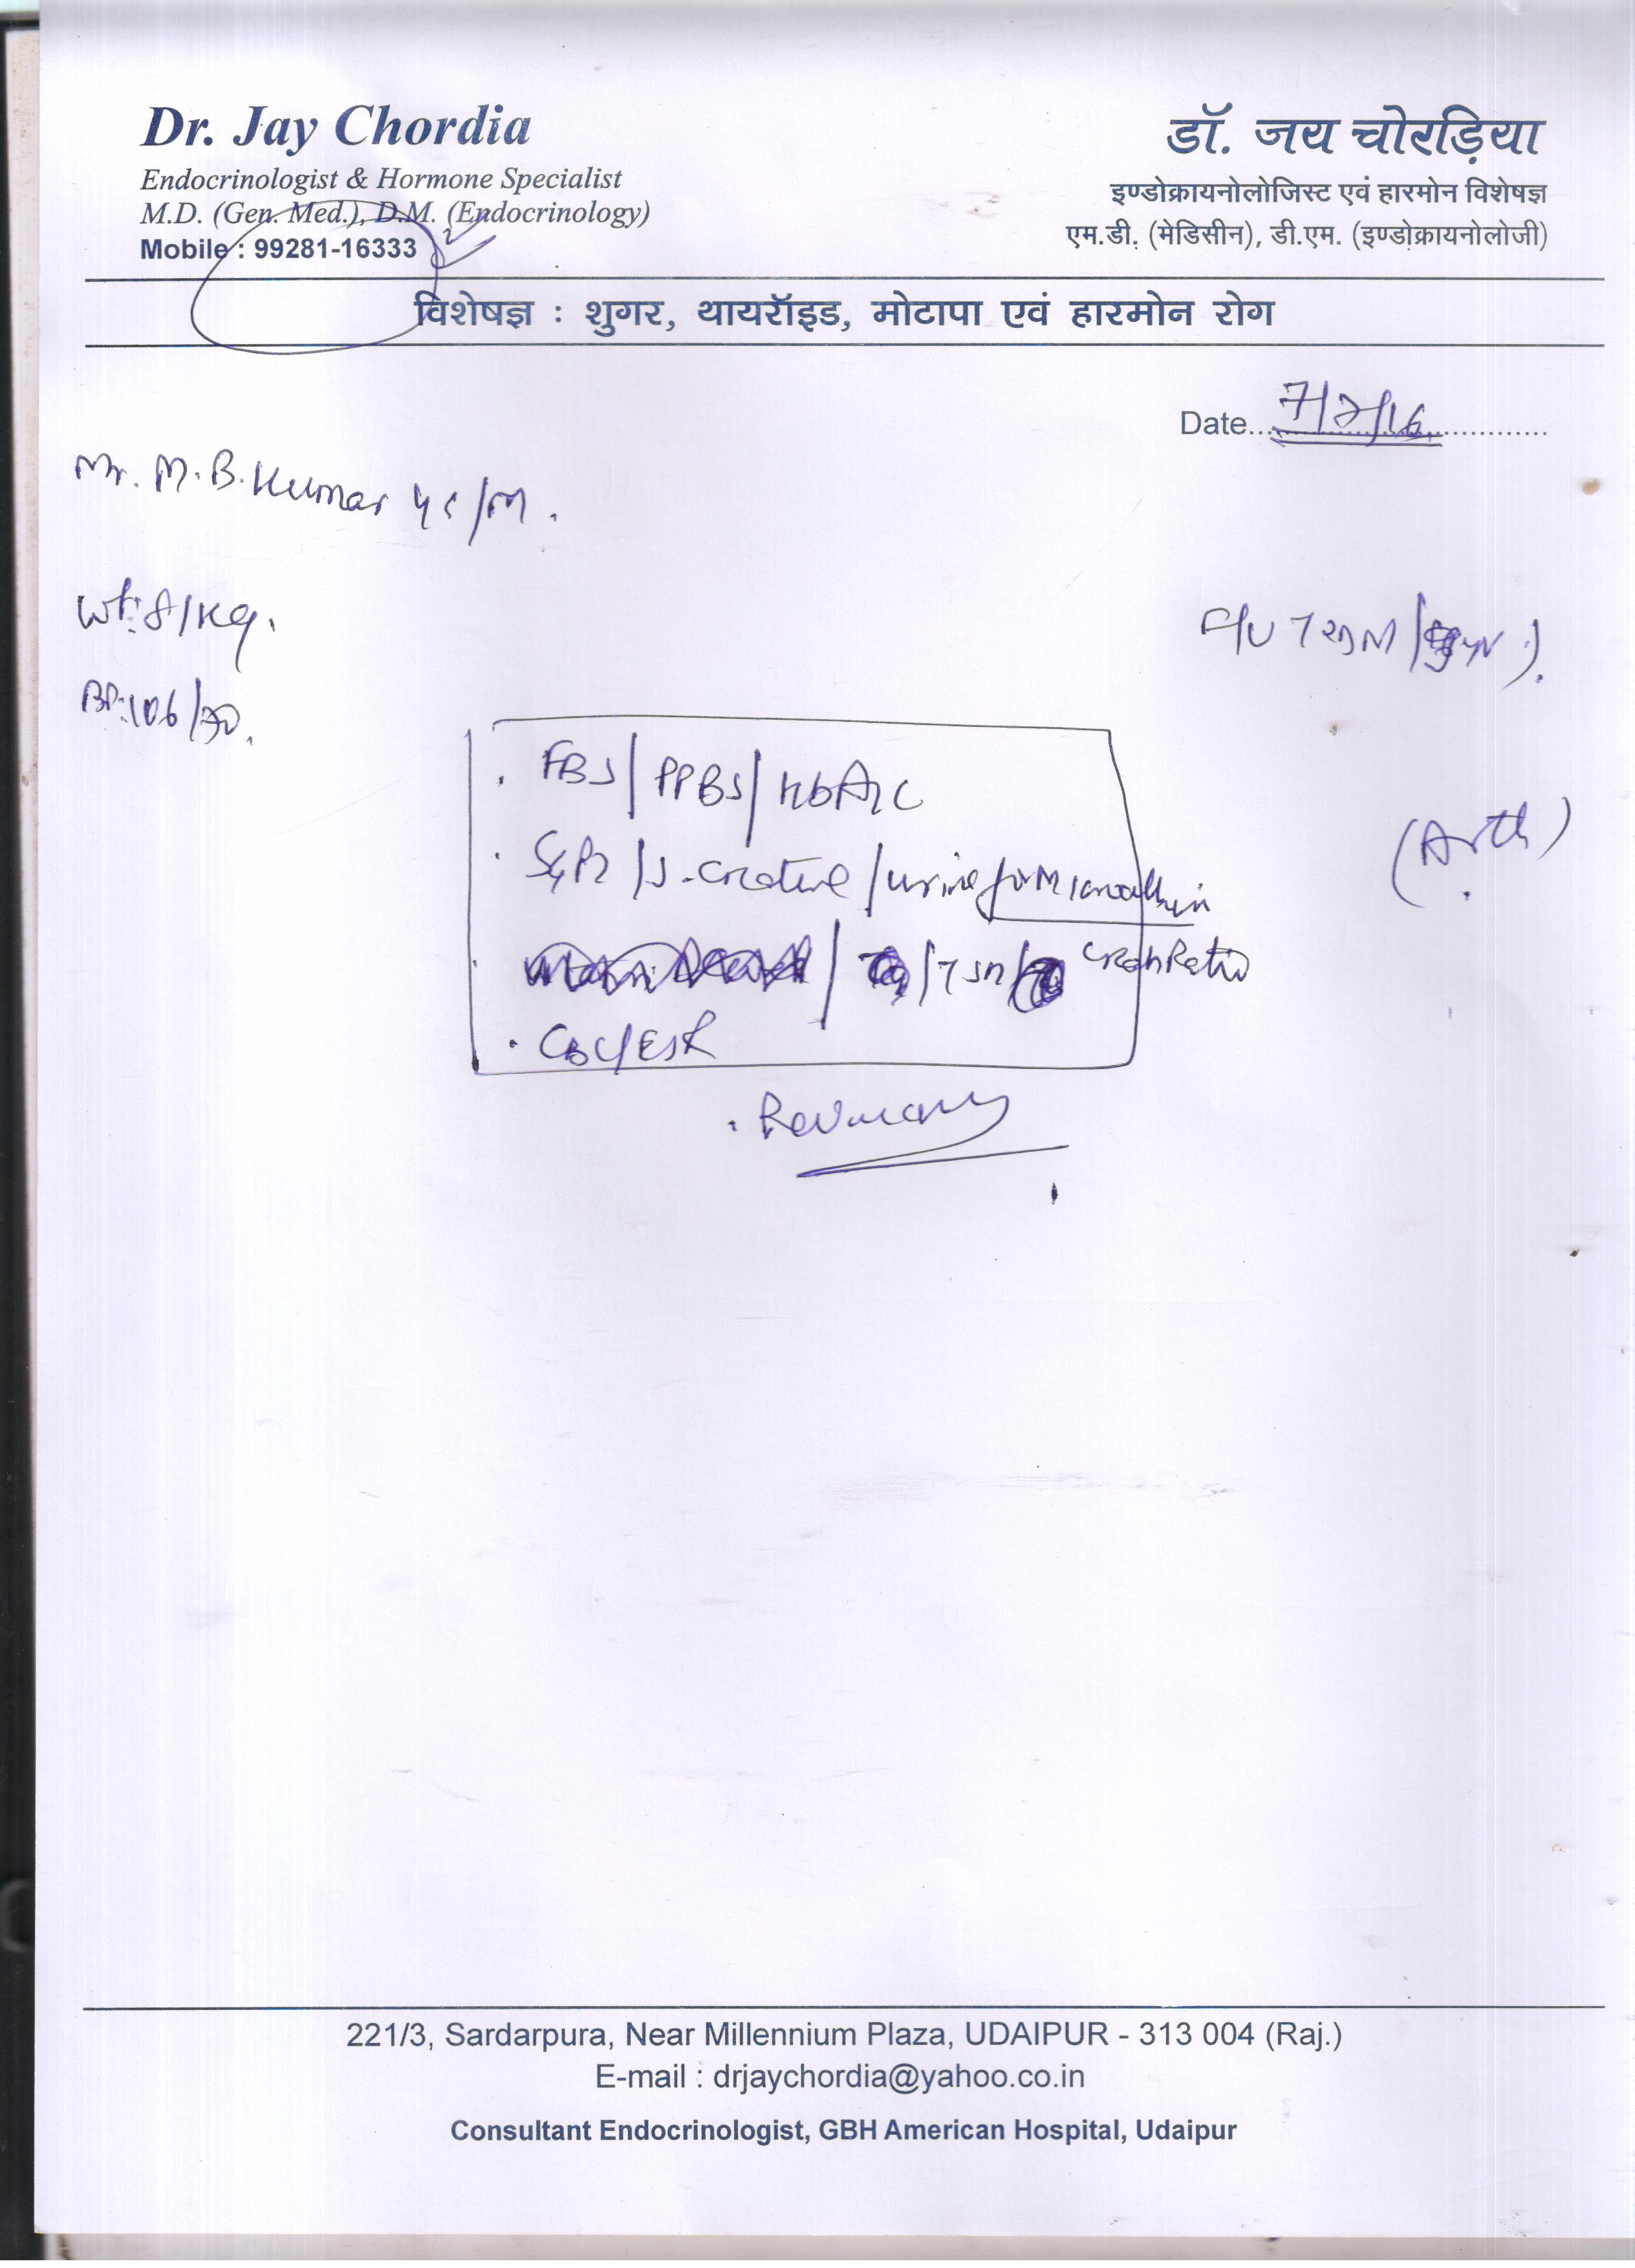 Dr. Jay Chordia
Endocrinologist & Hormone Specialist
M.D. (Gen. Med.), D.M. (Endocrinology)
Mobile : 99281-16333
डॉ. जय चोरड़िया
इण्डोक्रायनोलोजिस्ट एवं हारमोन विशेषज्ञ
एम.डी. (मेडिसीन), डी.एम. (इण्डोक्रायनोलोजी)
विशेषज्ञ : शुगर, थायरॉइड, मोटापा एवं हारमोन रोग
Date 7/2/16
Mr. M. B. Kumar 45/M.
Wt: 81Kg.
BP: 106/70.
F/U T2DM
(Arth)
. FBS/PPBS/HbA1c
/S. Creatine/urine for Microalbumin
/TSH/ Creat Ratio
. CBC/ESR
221/3, Sardarpura, Near Millennium Plaza, UDAIPUR - 313 004 (Raj.)
E-mail : drjaychordia@yahoo.co.in
Consultant Endocrinologist, GBH American Hospital, Udaipur